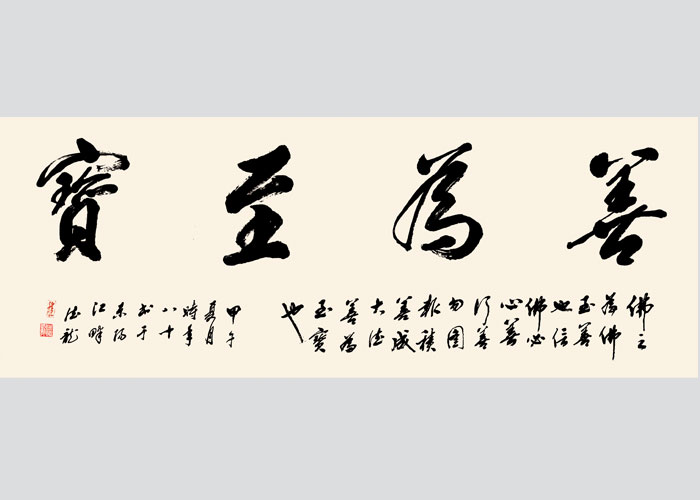 善為至寶
佛之
為佛
至善
也信
佛必
心善
行善
勿圖
報積
善成
大德
善為
至寶
也
甲午
夏月
時年
八十
書于
東陽
江畔
德龍